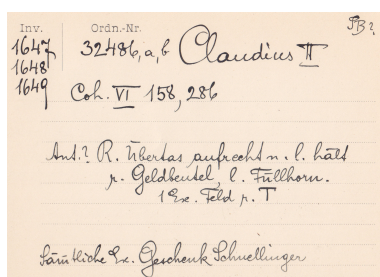 Inv. Ordn.-Nr. PB?
1647 32486, a, b Claudius II
1648
1649 Coh. VI 158, 286
Ant.? R. Übertas aufrecht n. l. hält
r. Geldbeutel, l. Füllhorn.
1 Ex. Feld r. T
Sämtliche Ex. Geschenk Schnellinger